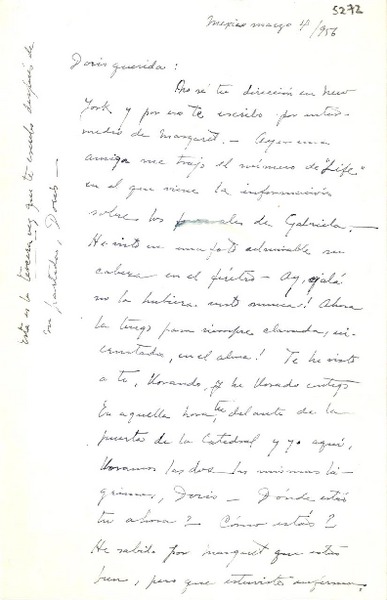 5272
Mexico marzo 4/956
Doris querida:
No sé tu dirección en New
York y por eso te escribo por inter-
medio de Margaret.— Ayer una
amiga me trajo el número de "Life"
en el que viene la información
sobre los funerales de Gabriela.—
He visto en una foto admirable su
cabeza en el féretro — Ay, ojalá
no la hubiera visto nunca! Ahora
la tengo para siempre clavada, in-
crustada, en el alma! Te he visto
a ti, llorando, y he llorado contigo
En aquella hora, tú delante de la
puerta de la Catedral y yo aquí,
lloramos las dos las mismas lá-
grimas, Doris — Dónde estás
tú ahora? Cómo estás?
He sabido por Margaret que estás
bien, pero que estuviste enferma,
Esta es la tercera vez que te escribo después de
tu partida, Doris —